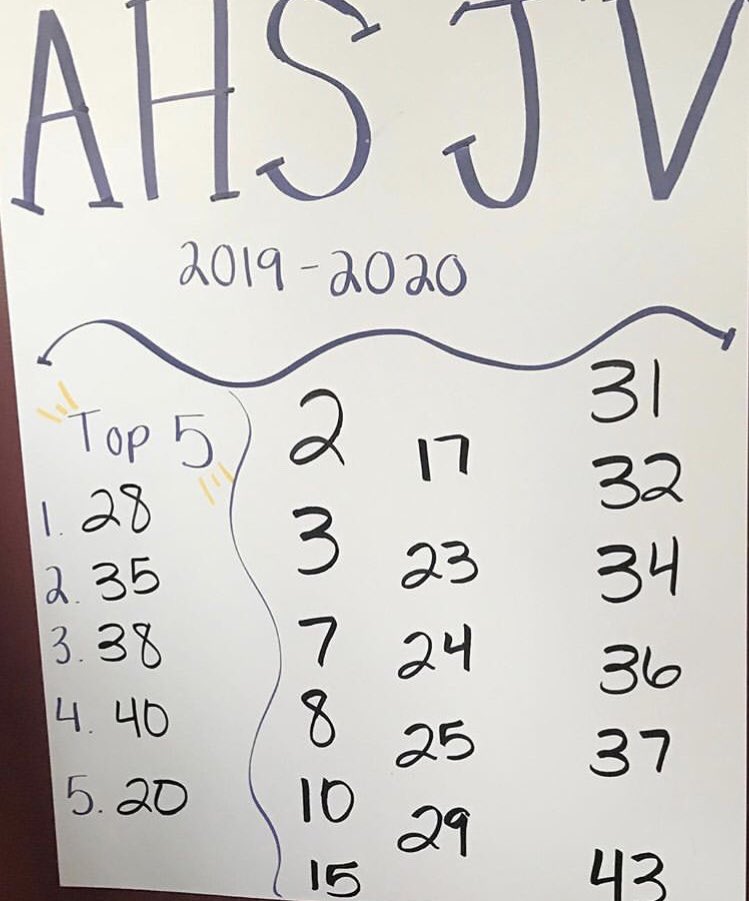 AHS JV
2019-2020
Top 5
1. 28
2. 35
3. 38
4. 40
5. 20
2
3
7
8
10
15
17
23
24
25
29
31
32
34
36
37
43